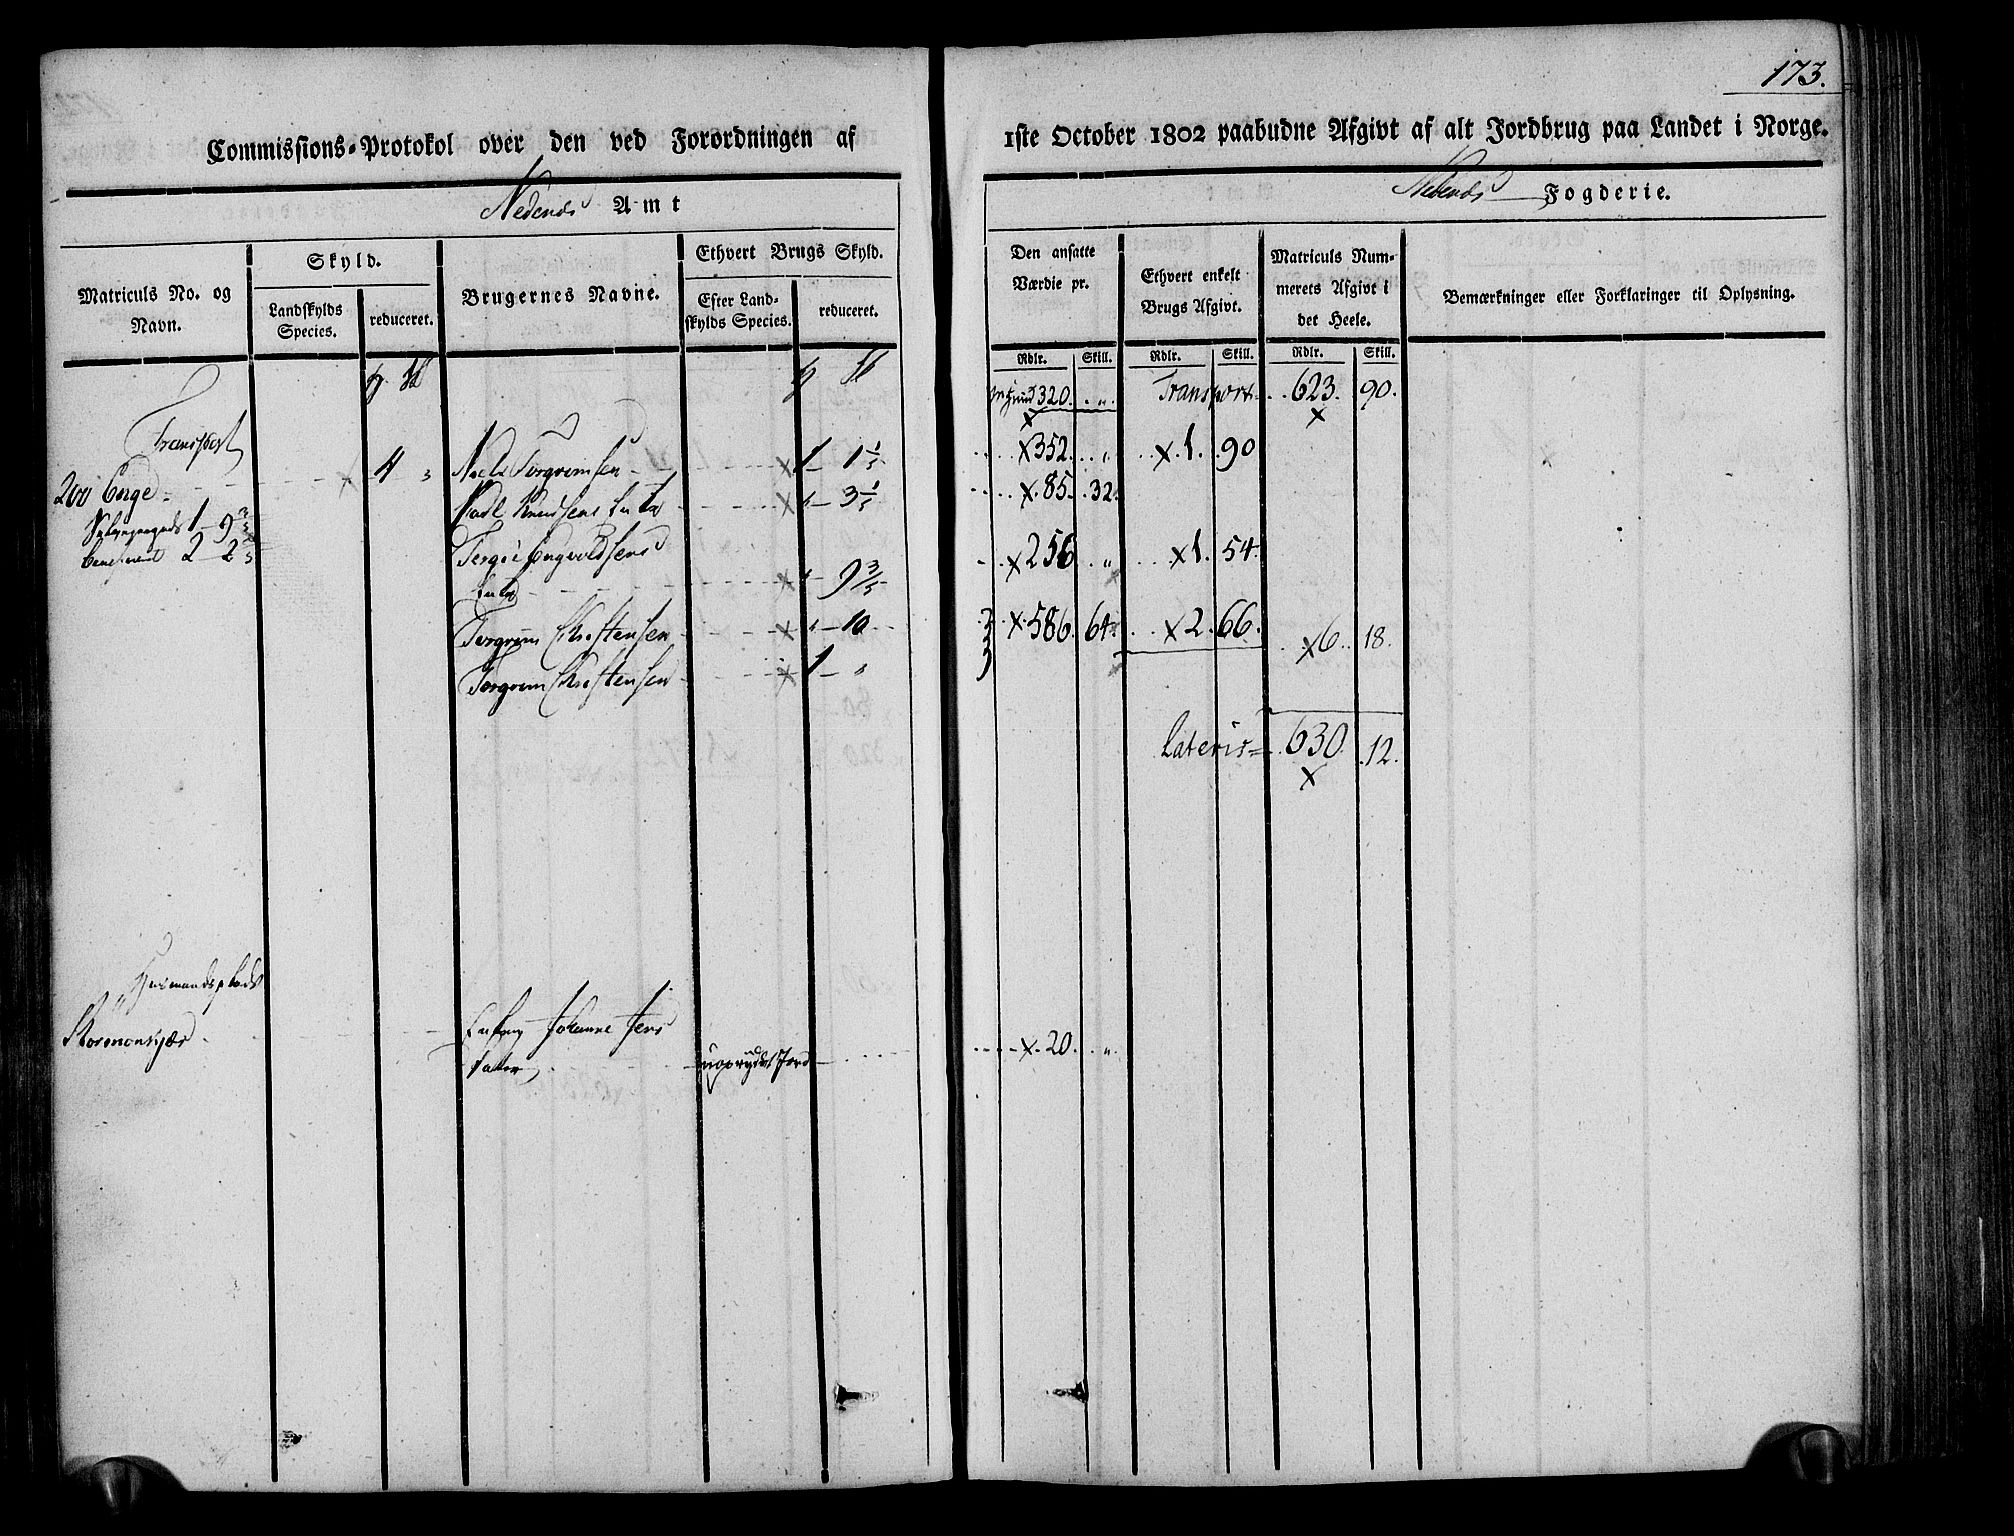 173.
Commissions-Protokol over den ved Forordningen af 1ste October 1802 paabudne Afgivt af alt Jordbrug paa Landet i Norge.
Nedenes Amt
Nedenes Fogderie.
Matriculs No. og Navn.
Skyld.
Landskylds Species.
reduceret.
Brugernes Navne.
Ethvert Brugs Skyld.
Efter Landskylds Species.
reduceret.
Den ansatte Værdie pr.
Rdlr. Skill.
Ethvert enkelt Brugs Afgivt.
Rdlr. Skill.
Matriculs Nummerets Afgivt i det Heele.
Rdlr. Skill.
Bemærkninger eller Forklaringer til Oplysning.
320. „ Transport 623. 90.
Transport
200 Enge 4 „ Niels Torgrimsen 1 - 1 1/5 352. „ 1. 90
1 - 9 3/5 Knudsens Enke „ - 3 1/5 85. 32.
beneficeret 2 - 2 2/5 Tergie Engvoldsens
Enke „ - 9 3/5 256 „ 1. 54.
Torgrim Christensen „ - 10
Torgrim Christensen 1 - „ 586. 64. 2. 66. 6. 18.
Lateris 630. 12.
Husmandsplads
Stormonskjær Johanne Jens
Datter uoprydet Jord 20. „